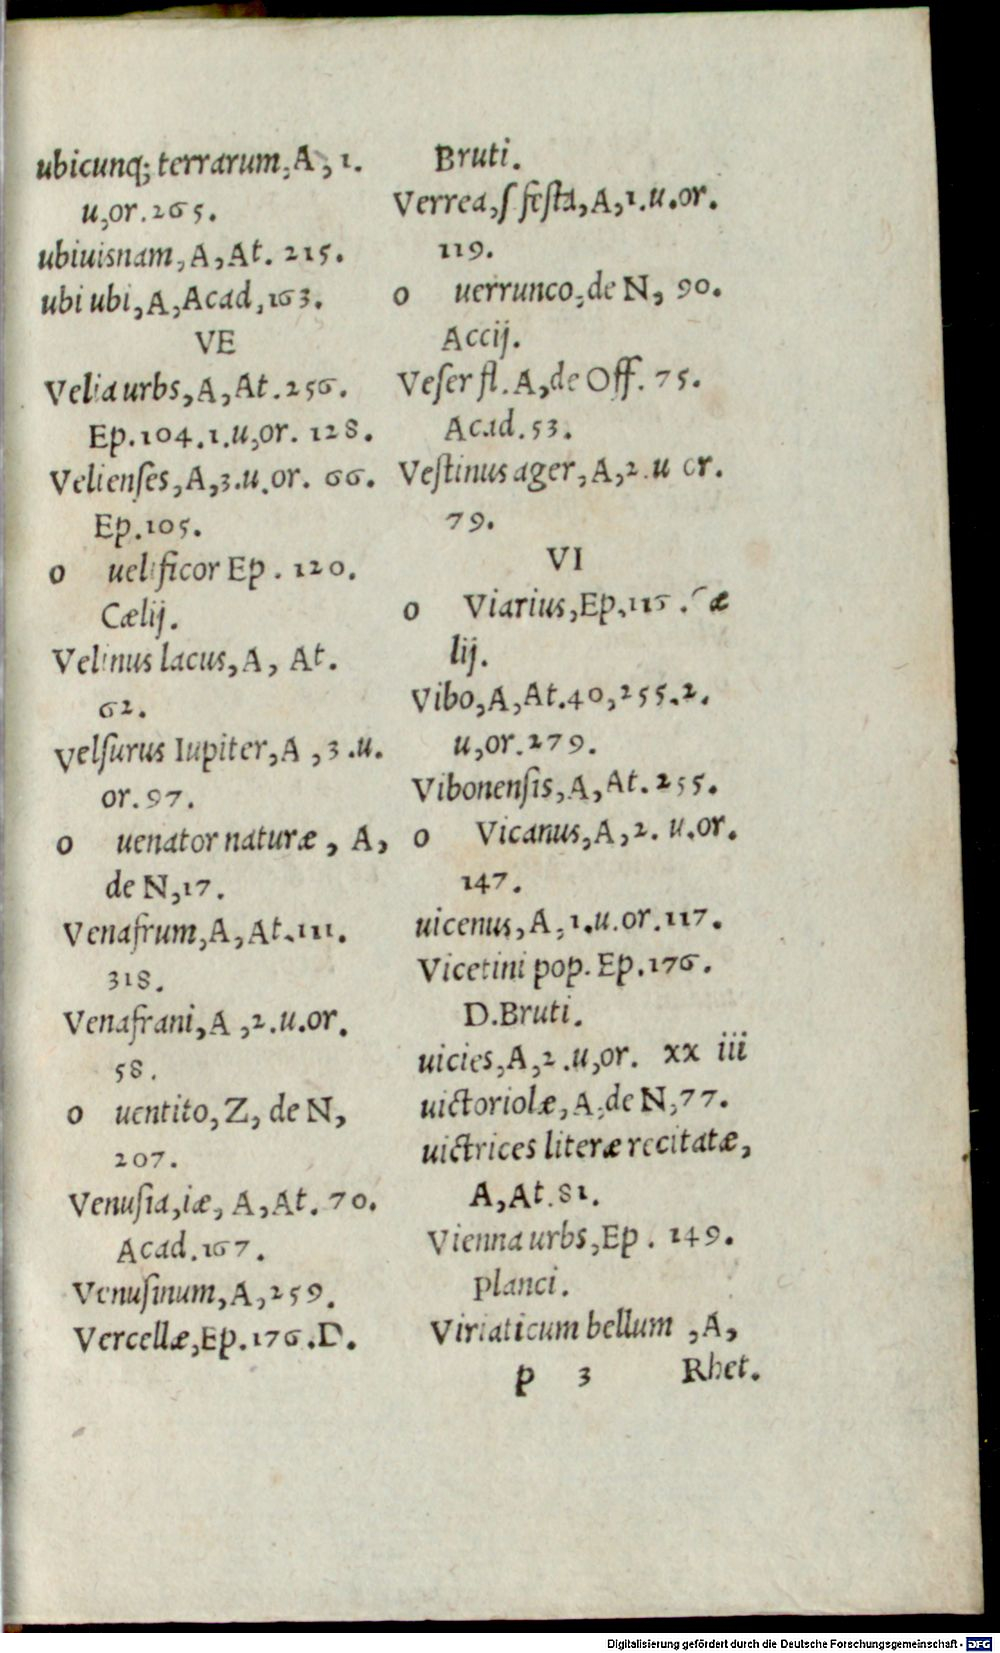 ubicunq; terrarum, A, 1.
u, or. 265.
ubiuisnam, A, At. 215.
ubi ubi, A, Acad, 163.
VE
Velia urbs, A, At. 256.
Ep. 104. 1. u, or. 128.
Velienſes, A, 3. u. or. 66.
Ep. 105.
o uelificor Ep. 120.
Cælij.
Velinus lacus, A, At.
62.
Velſurus Iupiter, A, 3. u.
or. 97.
o uenator naturæ, A,
de N, 17.
Venafrum, A, At. 111.
318.
Venafrani, A, 2. u. or.
58.
o uentito, Z, de N,
207.
Venuſia, iæ, A, At. 70.
Acad. 167.
Venuſinum, A, 259.
Vercellæ, Ep. 176. D.
Bruti.
Verrea, ſ feſta, A, 1. u. or.
119.
o uerrunco, de N, 90.
Accij.
Veſer fl. A, de Off. 75.
Acad. 53.
Veſtinus ager, A, 2. u or.
79.
VI
o Viarius, Ep. 116. Cæ
lij.
Vibo, A, At. 40, 255. 2.
u, or. 279.
Vibonenſis, A, At. 255.
o Vicanus, A, 2. u. or.
147.
uicenus, A, 1. u. or. 117.
Vicetini pop. Ep. 176.
D. Bruti.
uicies, A, 2. u, or. xx iii
uictoriolæ, A, de N, 77.
uictrices literæ recitatæ,
A, At. 81.
Vienna urbs, Ep. 149.
Planci.
Viriaticum bellum, A,
p 3 Rhet.
Digitalisierung gefördert durch die Deutsche Forschungsgemeinschaft - DFG